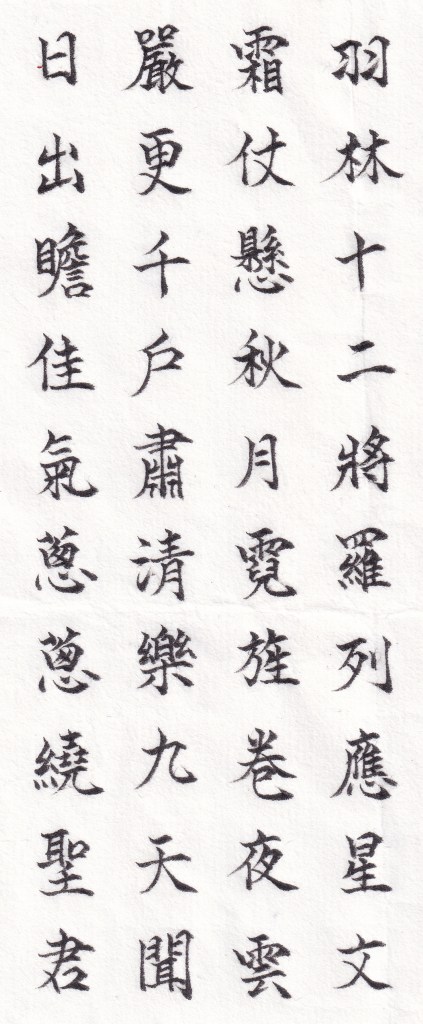 羽林十二將羅列應星文
霜仗懸秋月霓旌卷夜雲
嚴更千戶肅清樂九天聞
日出瞻佳氣蔥蔥繞聖君